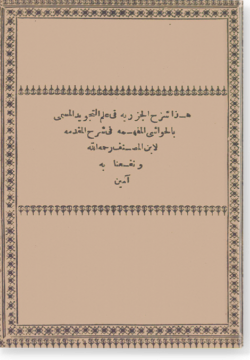 هذا شرح الجزرية في علم التجويد المسمى
بالحواشي المفهمه في شرح المقدمه
لابن المصنف رحمه الله
ونفعنا به
آمين